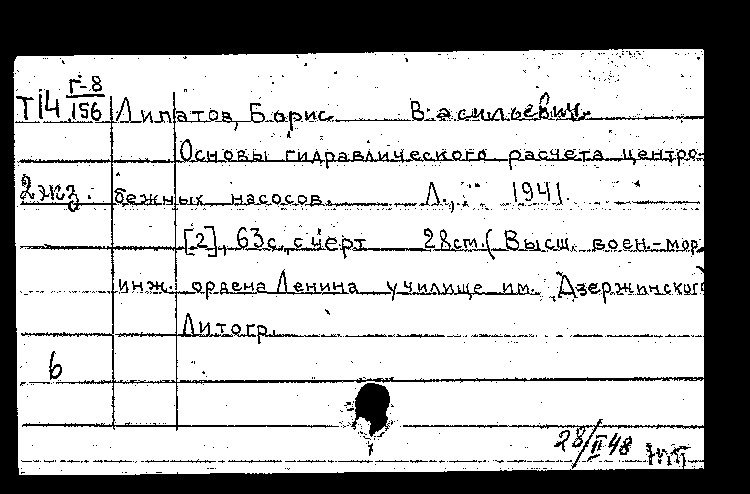 Т14 Г-8/156 Липатов, Борис Васильевич.
Основы гидравлического расчета центро-
2 экз. бежных насосов. Л., 1941.
[2], 63 с., с черт 28 см. (Высш. воен.-мор.
инж. ордена Ленина училище им. Дзержинского)
Литогр.
6
28/II 48